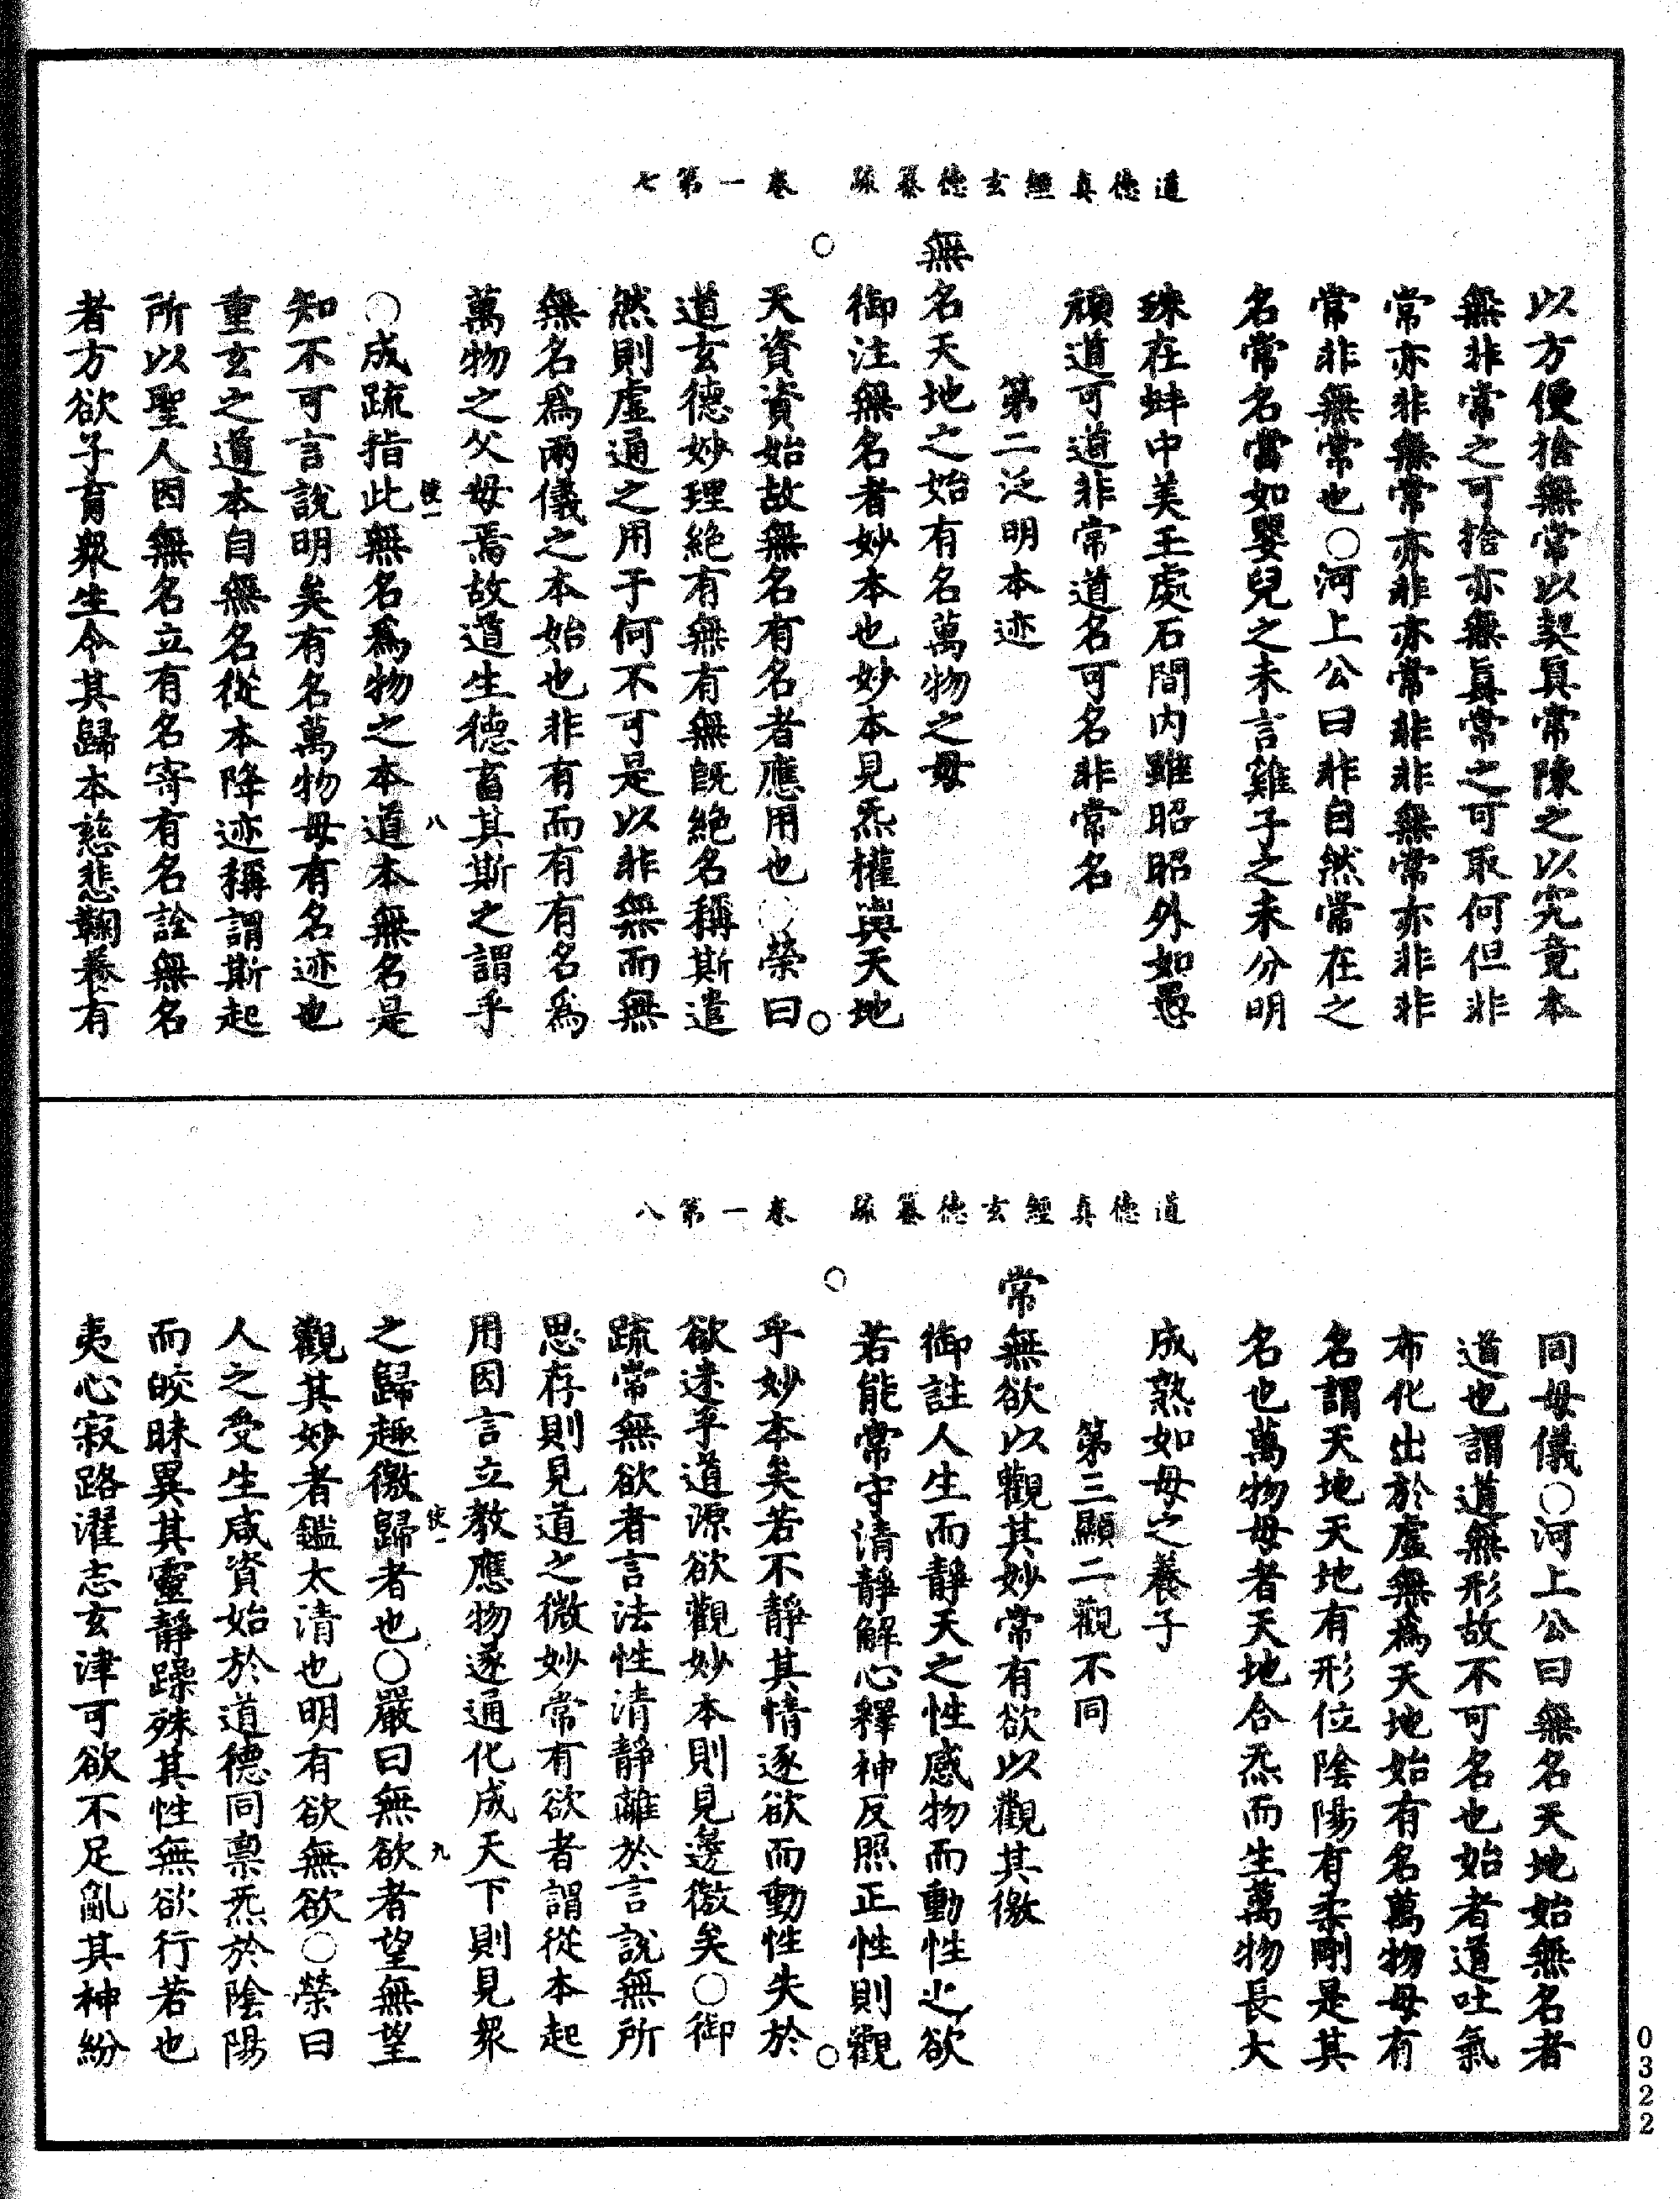 道德真經玄德纂疏　卷一第七
以方便捨無常以契眞常陳之以究竟本
無非常之可捨亦無眞常之可取何但非
常亦非無常亦非亦常非非無常亦非非
常非無常也○河上公曰非自然常在之
名常名當如嬰兒之未言雞子之未分明
珠在蚌中美玉處石間内雖昭昭外如愚
頑道可道非常道名可名非常名
第二泛明本迹
無名天地之始有名萬物之母
御注無名者妙本也妙本見炁權輿天地
天資資始故無名有名者應用也○榮曰
道玄德妙理絶有無有無旣絶名稱斯遣
然則虛通之用于何不可是以非無而無
無名爲兩儀之本始也非有而有有名爲
萬物之父母焉故道生德畜其斯之謂乎
使一　八
○成疏指此無名爲物之本道本無名是
知不可言說明矣有名萬物母有名迹也
重玄之道本自無名從本降迹稱謂斯起
所以聖人因無名立有名寄有名詮無名
者方欲子育衆生令其歸本慈悲鞠養有
道德真經玄德纂疏　卷一第八
同母儀○河上公曰無名天地始無名者
道也謂道無形故不可名也始者道吐氣
布化出於虛無爲天地始有名萬物母有
名謂天地天地有形位陰陽有柔剛是其
名也萬物母者天地合炁而生萬物長大
成熟如母之養子
第三顯二觀不同
常無欲以觀其妙常有欲以觀其徼
御註人生而靜天之性感物而動性之欲
若能常守清靜解心釋神反照正性則觀
乎妙本矣若不靜其情逐欲而動性失於
欲迷乎道源欲觀妙本則見邊徼矣○御
疏常無欲者言法性清靜離於言說無所
思存則見道之微妙常有欲者謂從本起
用因言立教應物遂通化成天下則見衆
使一　九
之歸趣徼歸者也○嚴曰無欲者望無望
觀其妙者鑑太清也明有欲無欲○榮曰
人之受生咸資始於道德同禀炁於陰陽
而皎昧異其靈靜躁殊其性無欲行若也
夷心寂路濯志玄津可欲不足亂其神紛
0322